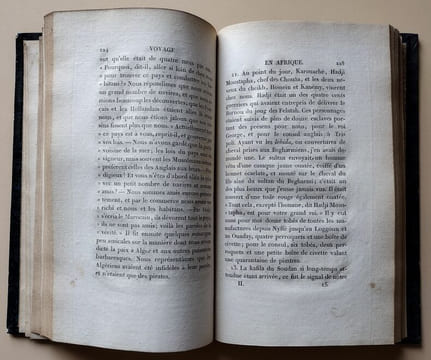 224 VOYAGE
sut qu'elle était de quatre mois
« Pourquoi, dit-il, aller si loin de chez vous
« pour trouver ce pays et combattre les ha-
« bitans? » Nous répondîmes que nous avions
un grand nombre de navires, et que nous ai-
mions beaucoup les découvertes; que les Fran-
çais et les Hollandais étaient comme
nous, et que nous étions jaloux que ces
fissent plus que nous. « Actuellement,
« ce pays est à vous, reprit-il, et gouverné par
« vos lois. — Nous n'avons gardé que la
« voisine de la mer; les lois du pays sont en
« vigueur; mais souvent les Musulmans même
« préfèrent celles des Anglais aux leurs. — Pro-
« digieux! Et vous n'êtes d'abord allés là
« vec un petit nombre de navires et comme
« amis? — Nous sommes amis encore présen-
« tement, et par le commerce nous avons en-
« richi et nous et les habitans. — Par Dieu!
« s'écria le Marocain, ils dévorent tout le pays,
« ils ne sont pas amis; voilà les paroles de la
« vérité. » Il fit ensuite quelques remarques
peu amicales sur la manière dont nous avions
dicté la paix à Alger et aux autres puissances
barbaresques. Nous représentâmes que les
Algériens avaient été infidèles à leur parole,
et n'étaient que des pirates.
EN AFRIQUE 225
Au point du jour, Karamaché, Hadji
Moustapha, chef des Chouâa, et les deux ne-
veux du cheikh, Hossein et Kanémy, vinrent
chez nous. Hadji était un des quatre cents
guerriers qui avaient entrepris de délivrer le
Bornou du joug des Felatah. Ces personnages
étaient suivis de plus de douze esclaves por-
tant des présens pour nous, pour le roi
George, et pour le consul anglais à Tri-
poli. Ayant vu les lebida, ou couvertures de
cheval prises aux Begharmiens, j'en avais de-
mandé une. Le sultan envoyait un homme
vêtu d'une casaque jaune ouatée, coiffé d'un
bonnet écarlate, et monté sur le cheval du
fils aîné du sultan du Begharmi; c'était un
des plus beaux que j'eusse jamais vus. Il était
couvert d'une toile rouge également ouatée.
« Tout cela, excepté l'homme, dit Hadji Mous-
« tapha, est pour votre grand roi. » Il y eut
aussi pour moi douze tobés de toutes les ma-
nufactures depuis Nyffé jusqu'au Loggoun et
au Ouaday, quatre perroquets et une boîte de
civette; pour le consul, six tobés, deux per-
roquets et une petite boîte de civette valant
une quarantaine de piastres.
La kafila du Soudan si long-temps at-
tendue étant arrivée, ce fut le signal de notre
II. 15